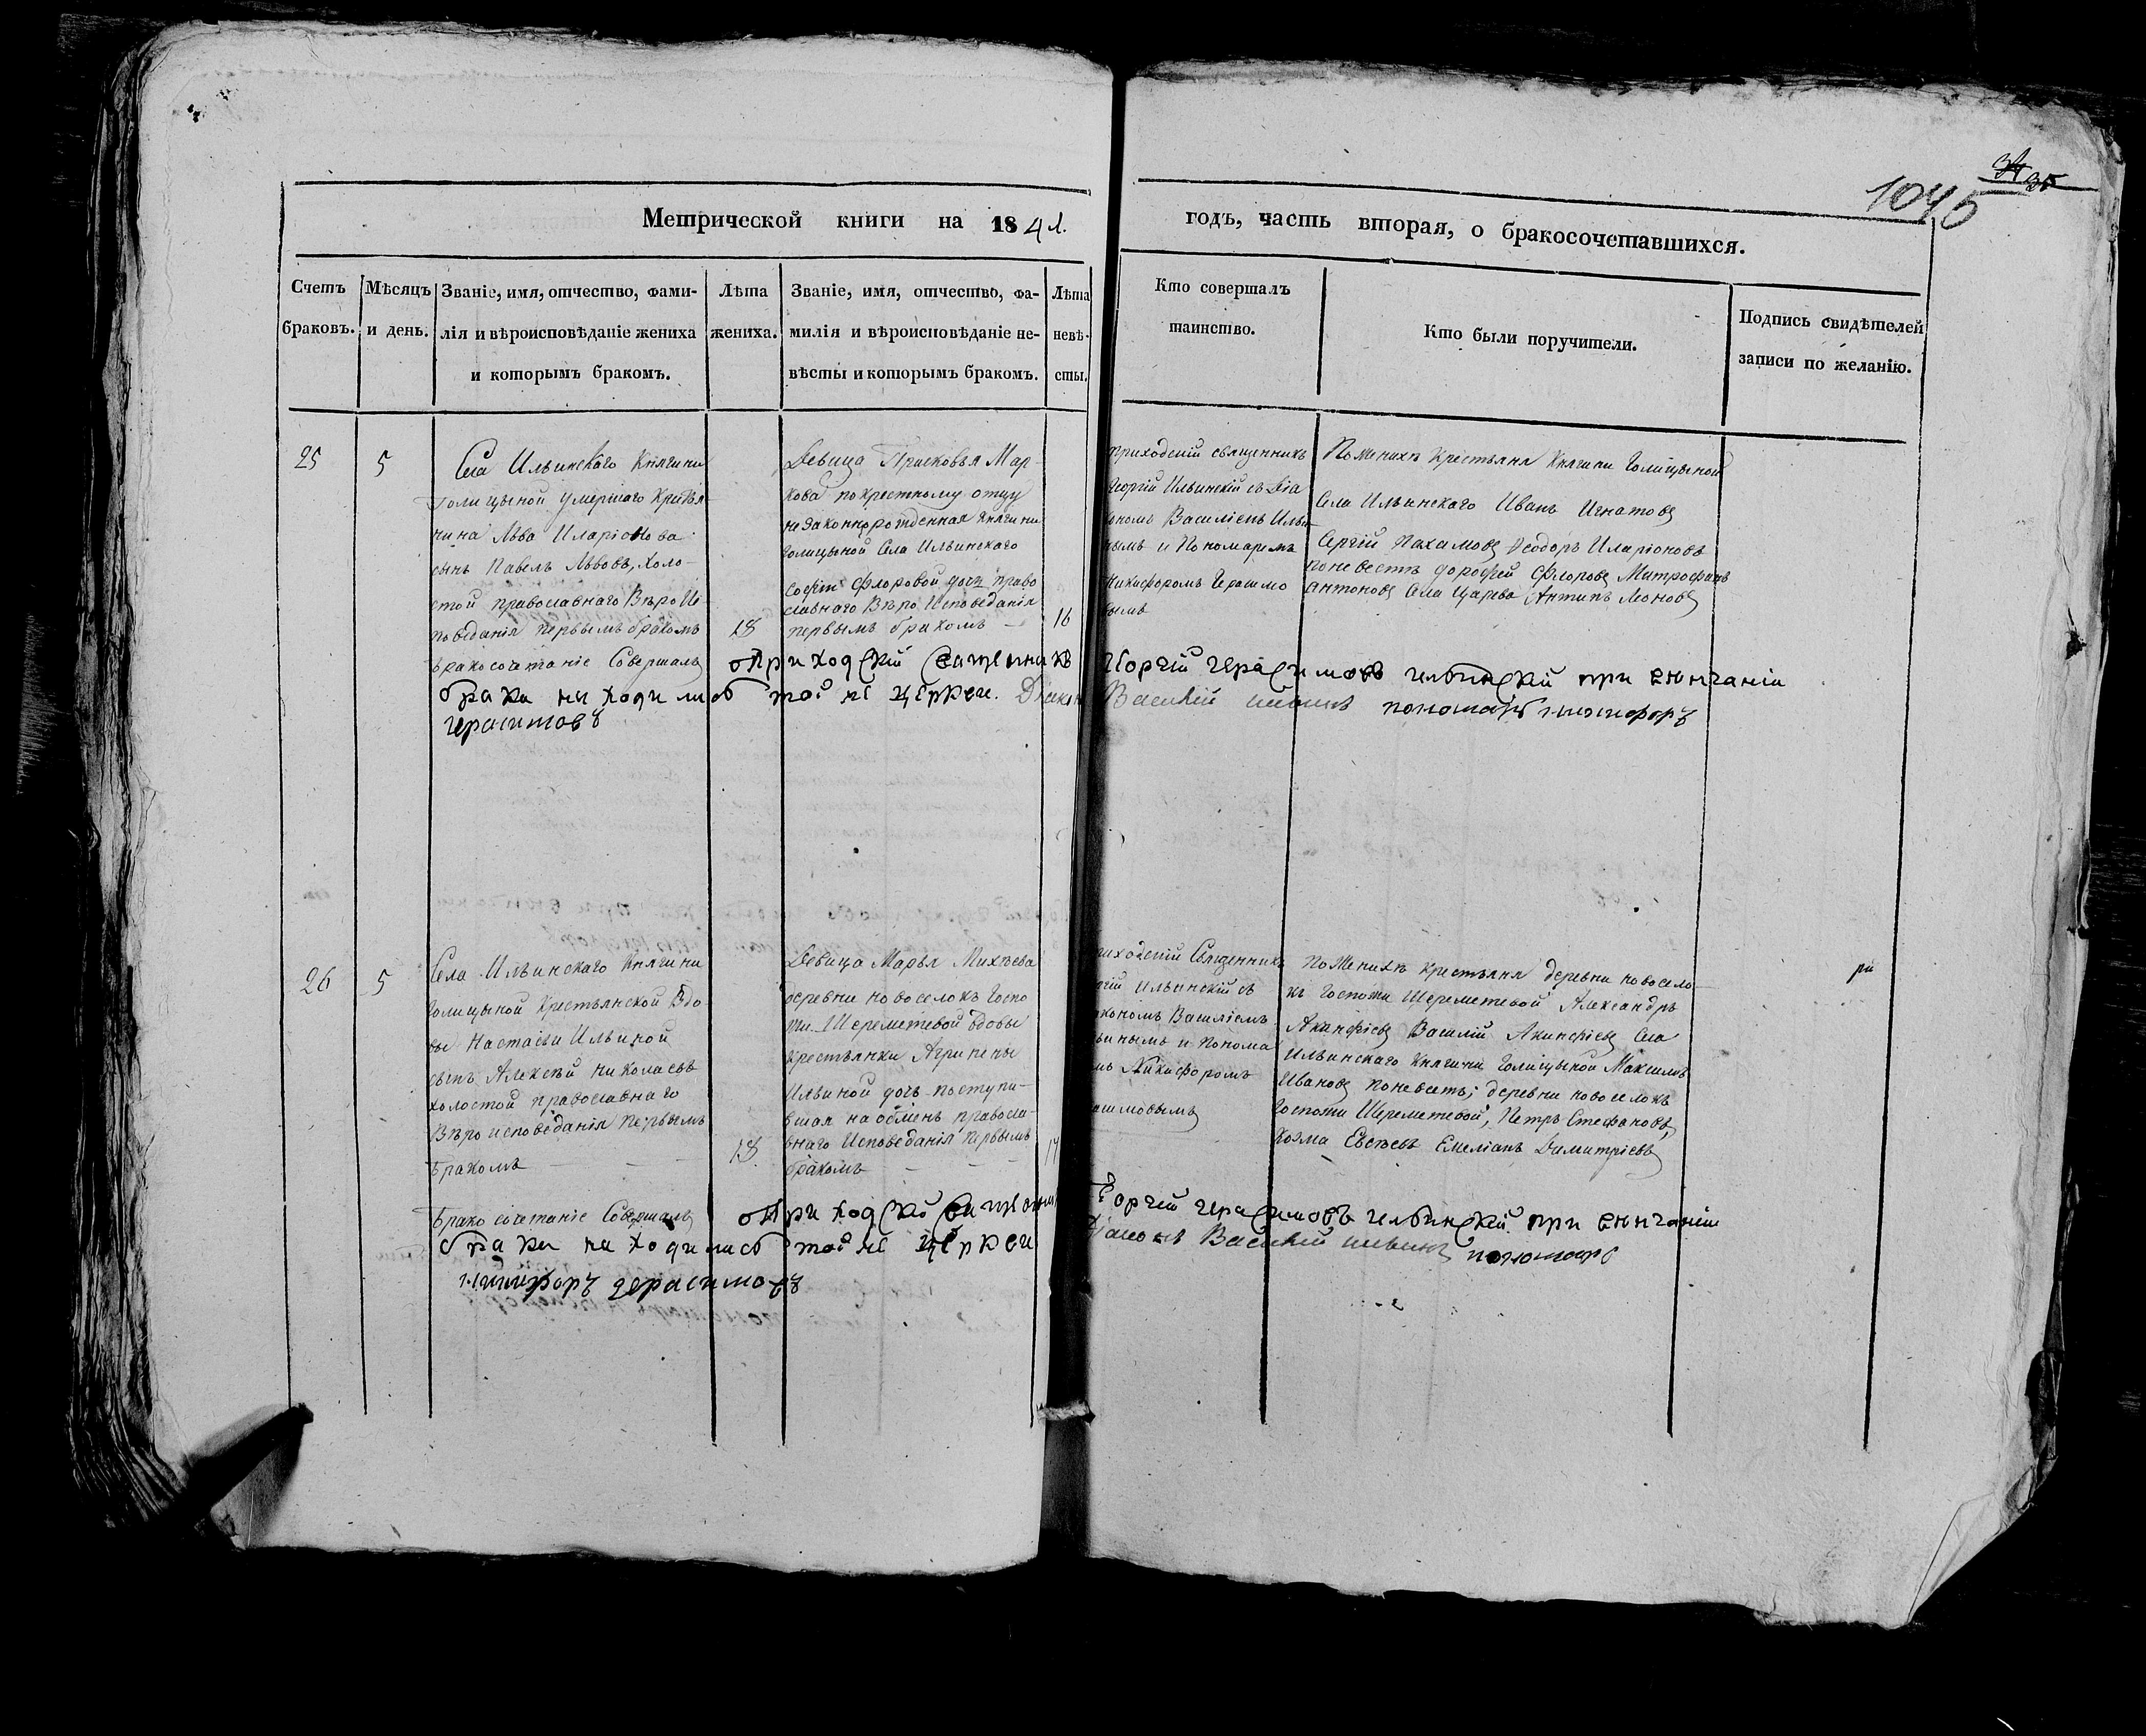 34 35
1045
Метрической книги на 1841.
годъ, часть вторая, о бракосочетавшихся.
Счетъ
браковъ.
Мѣсяцъ
и день.
Званіе, имя, отчество, фами-
лія и вѣроисповѣданіе жениха
и которымъ бракомъ.
Лѣта
жениха.
Званіе, имя, отчество, фа-
милія и вѣроисповѣданіе не-
вѣсты и которымъ бракомъ.
Лѣта
невѣ-
сты.
Кто совершалъ
таинство.
Кто были поручители.
Подпись свидѣтелей
записи по желанію.
25
5
Села Ильинскаго Княгини
Голицыной умершаго Крестья-
нина Льва Иларіонова
сынъ Павелъ Львовъ, холо-
стой православнаго Вѣроис-
поведанія первымъ бракомъ
18
Девица Прасковья Мар-
кова по крестному отцу
незаконнорожденная Княгини
Голицыной Села Ильинскаго
Софіи Флоровой дочь право
славнаго Вѣро Исповеданія
первымъ бракомъ —
16
приходскій священникъ
Георгій Ильинскій съ Діа
кономъ Василіемъ Ильи-
нымъ и Пономаремъ
Никифоромъ Герасимо
вымъ
По женихѣ крестьяня Княгини Голицыной
Села Ильинскаго Иванъ Игнатовъ
Сергій Пахамовъ Ѳеодоръ Иларіоновъ
по невестѣ дорофей Флоровъ Митрофанъ
антоновъ Села Царева Антипъ Леоновъ
бракосочетаніе Совершалъ приходскій священникъ Георгій герасимовъ ильинскій при внчаніи
брака находились той же церкви. Діаконъ Василій ильинъ пономарь никифоръ
герасимовъ
26
5
Села Ильинскаго Княгини
Голицыной Крестьянской Вдо
вы Настасьи Ильиной
сынъ Алексѣй николаевъ
холостой православнаго
Вѣро исповѣданія первымъ
бракомъ — — —
18
Девица Марья Михѣева
деревни новоселокъ Госпо
жи Шереметевой вдовы
крестьянки Агрипены
Ильиной дочь поступи-
вшая на обменъ, правосла-
внаго Исповѣданія первымъ
бракомъ — — —
17
риходскій Священникъ
ргій Ильинскій съ
акономъ Василіемъ
ьинымъ и Понома
мъ Никифоромъ
асимовымъ
По женихѣ крестьяня деревни новосело-
къ Госпожи Шереметевой Александръ
Акинфіевъ Василій Акинфіевъ Села
Ильинскаго Княгини Голицыной Максимъ
Ивановъ по невѣстѣ; деревни новоселокъ
Госпожи Шереметевой, Петръ Стефановъ,
Козма Евсѣевъ Емеліанъ Димитріевъ
Бракосочетаніе Совершалъ приходской священникъ Георгій герасимовъ ильинскій при внчаніи
брака находились той же церкви Діаконъ Василій ильинъ пономарь
никифоръ герасимовъ